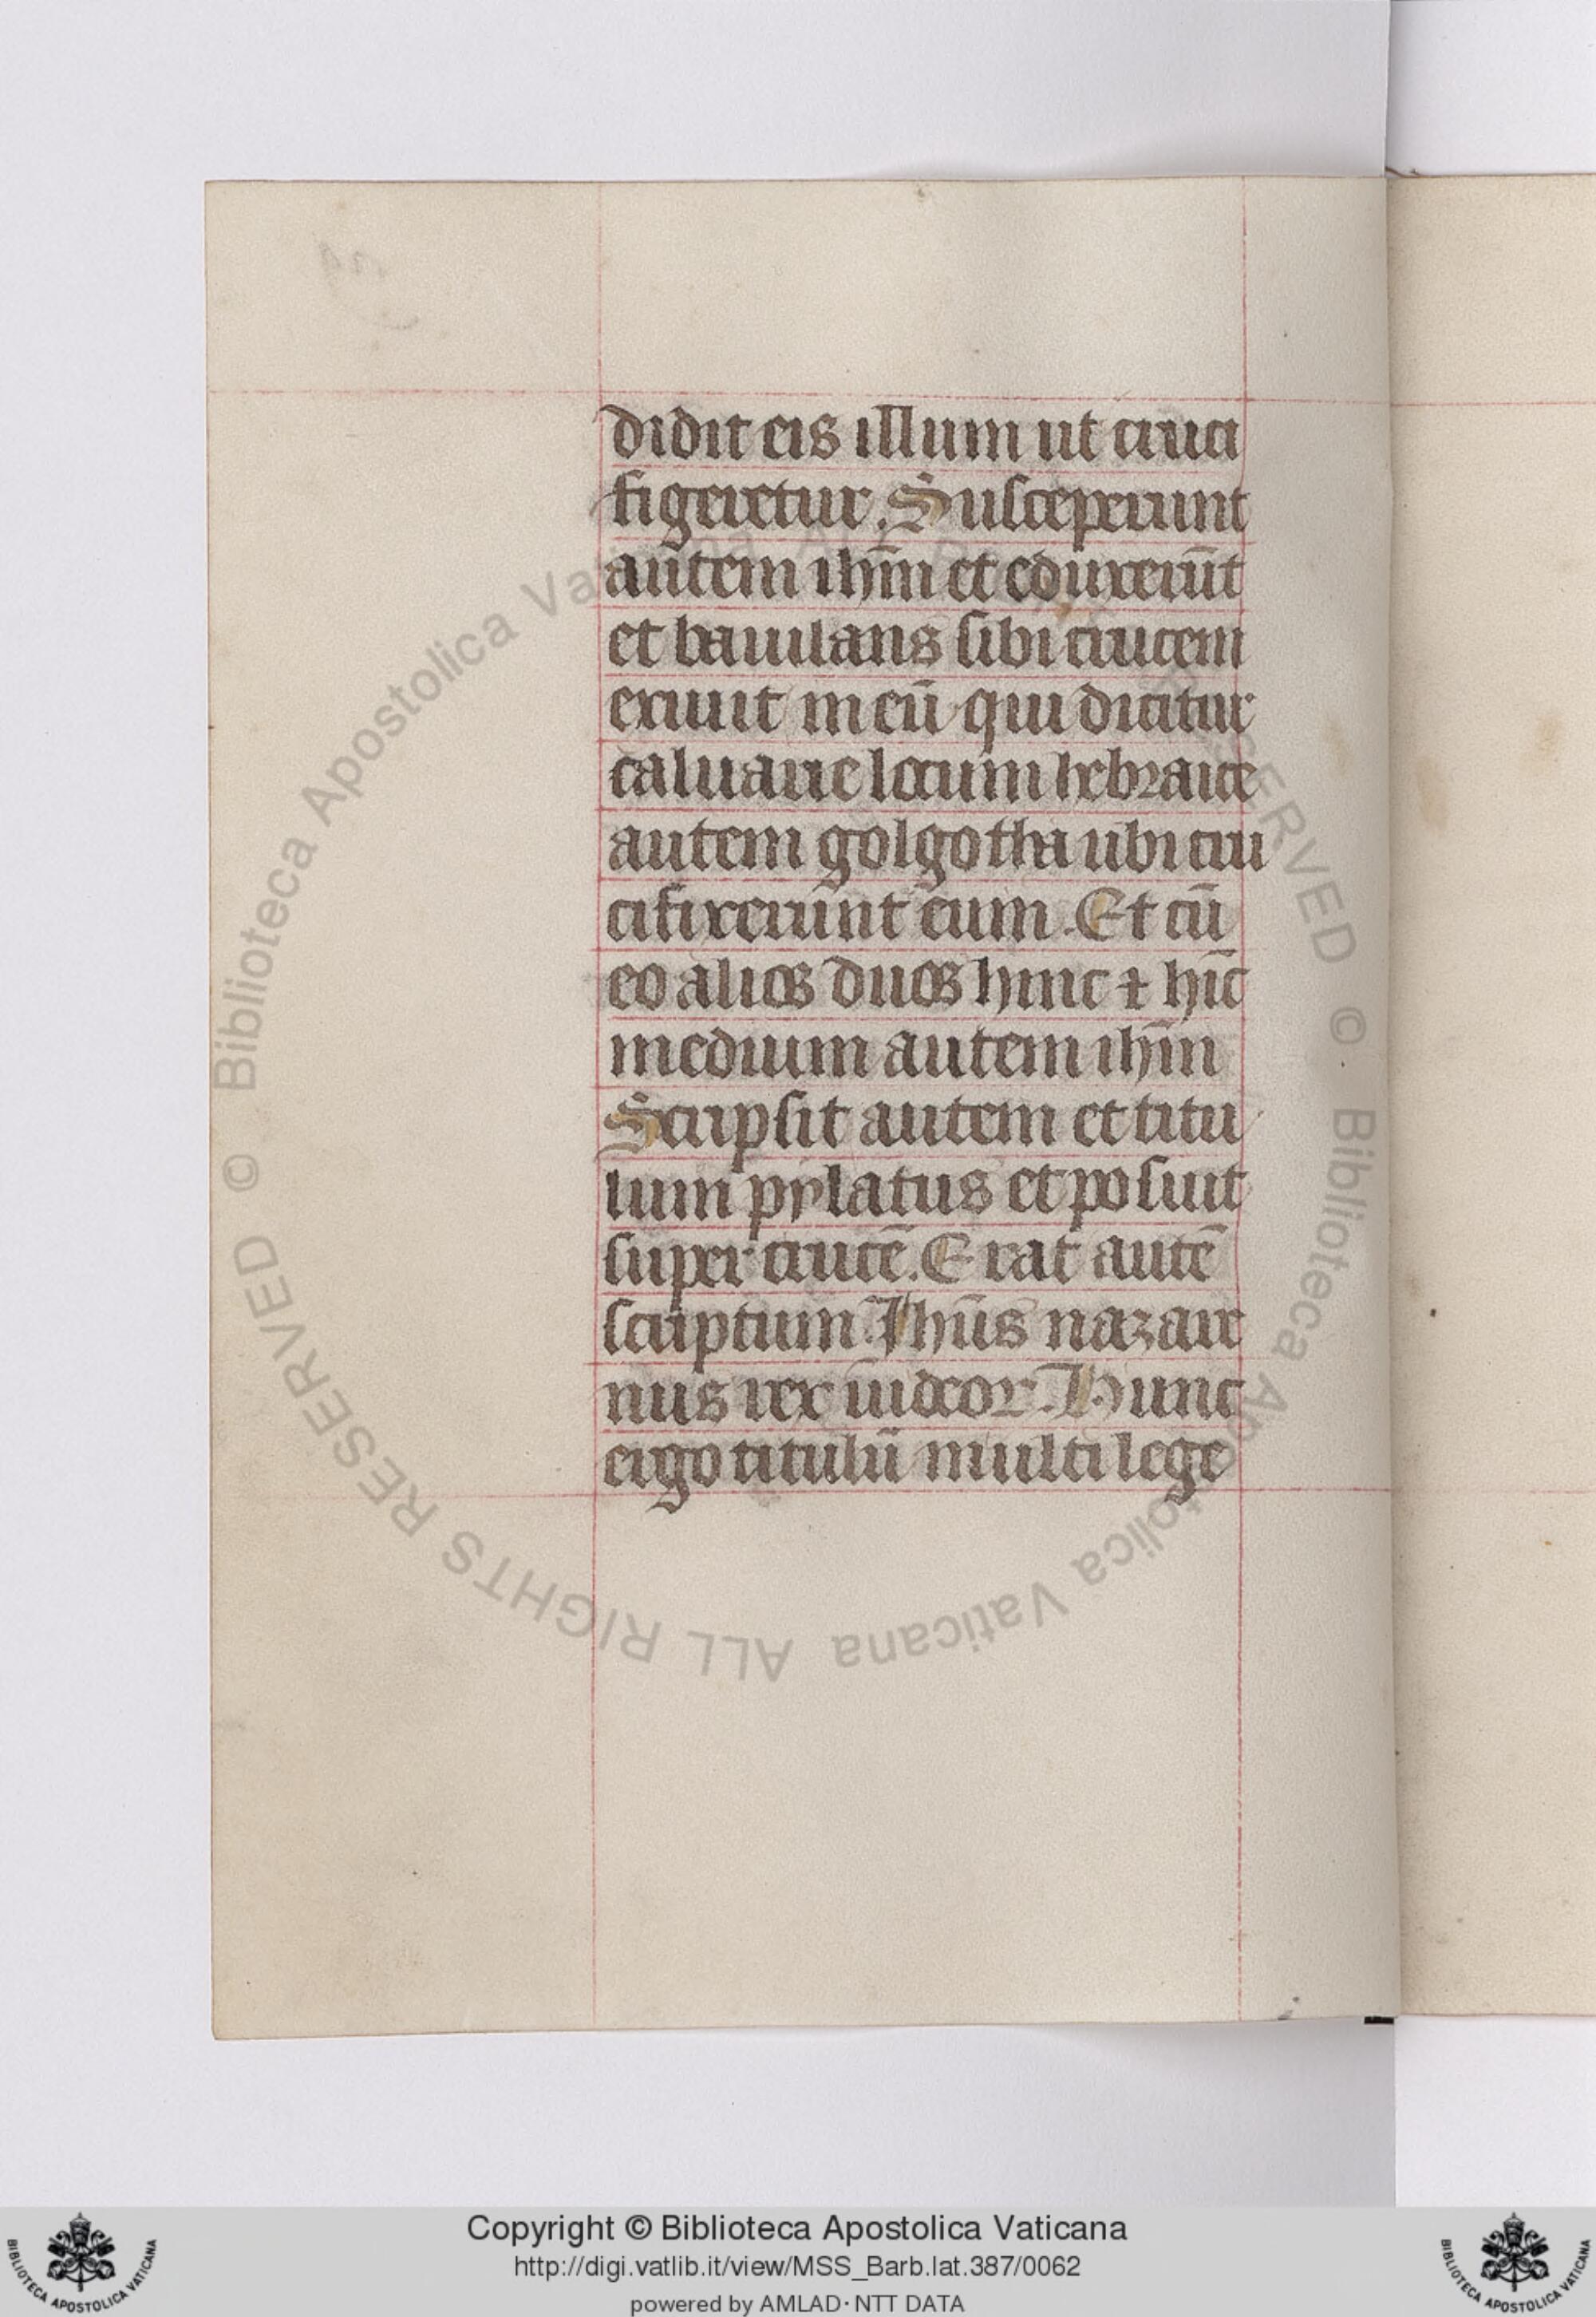 didit eis illum ut cruci
figeretur. Susceperunt
autem ihm̄ et eduxerūt
et baiulans sibi crucem
exiuit in eū qui dicitur
caluarie locum hebraice
autem golgotha ubi cru
cifixerunt eum. Et cū
eo alios duos hinc ⁊ hīc
medium autem ihm̄
Scripsit autem et titu
lum pylatus et posuit
super crucē. Erat autē
scriptum. Ihūs nazare
nus rex iudeoꝝ. Hunc
ergo titulū multi lege
© Biblioteca Apostolica Vaticana ALL RIGHTS RESERVED
© Biblioteca Apostolica Vaticana ALL RIGHTS RESERVED
Copyright © Biblioteca Apostolica Vaticana
http://digi.vatlib.it/view/MSS_Barb.lat.387/0062
powered by AMLAD·NTT DATA
BIBLIOTECA APOSTOLICA VATICANA
BIBLIOTECA APOSTOLICA VATICANA